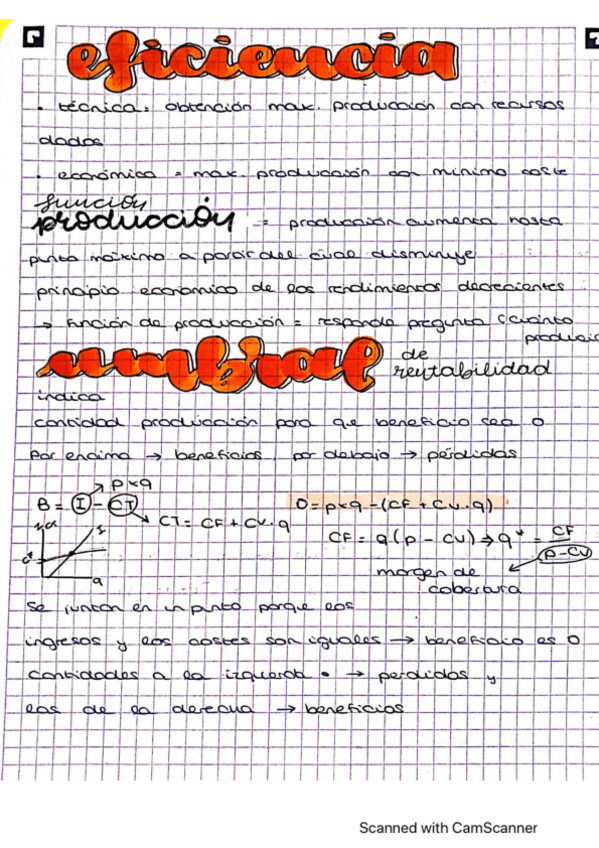 eficiencia
• técnica = obtención max. producción con recursos
dados
• económica = max. producción con mínimo coste
función
producción = producción aumenta hasta
punto máximo a partir del cual disminuye
principio económico de los rendimientos decrecientes
→ Función de producción = responde pregunta ¿cuánto
producir
umbral de
rentabilidad
indica
cantidad producción para que beneficio sea 0
Por encima → beneficios, por debajo → pérdidas
p×q
B = I - CT
CT = CF + CV·q
0 = p×q - (CF + CV·q)
CF = q(p - CV) ⇒ q* = CF / p-CV
margen de
cobertura
I
q
Se juntan en un punto porque los
ingresos y los costes son iguales → beneficio es 0
cantidades a la izquierda • → perdidas y
las de la derecha → beneficios
Scanned with CamScanner